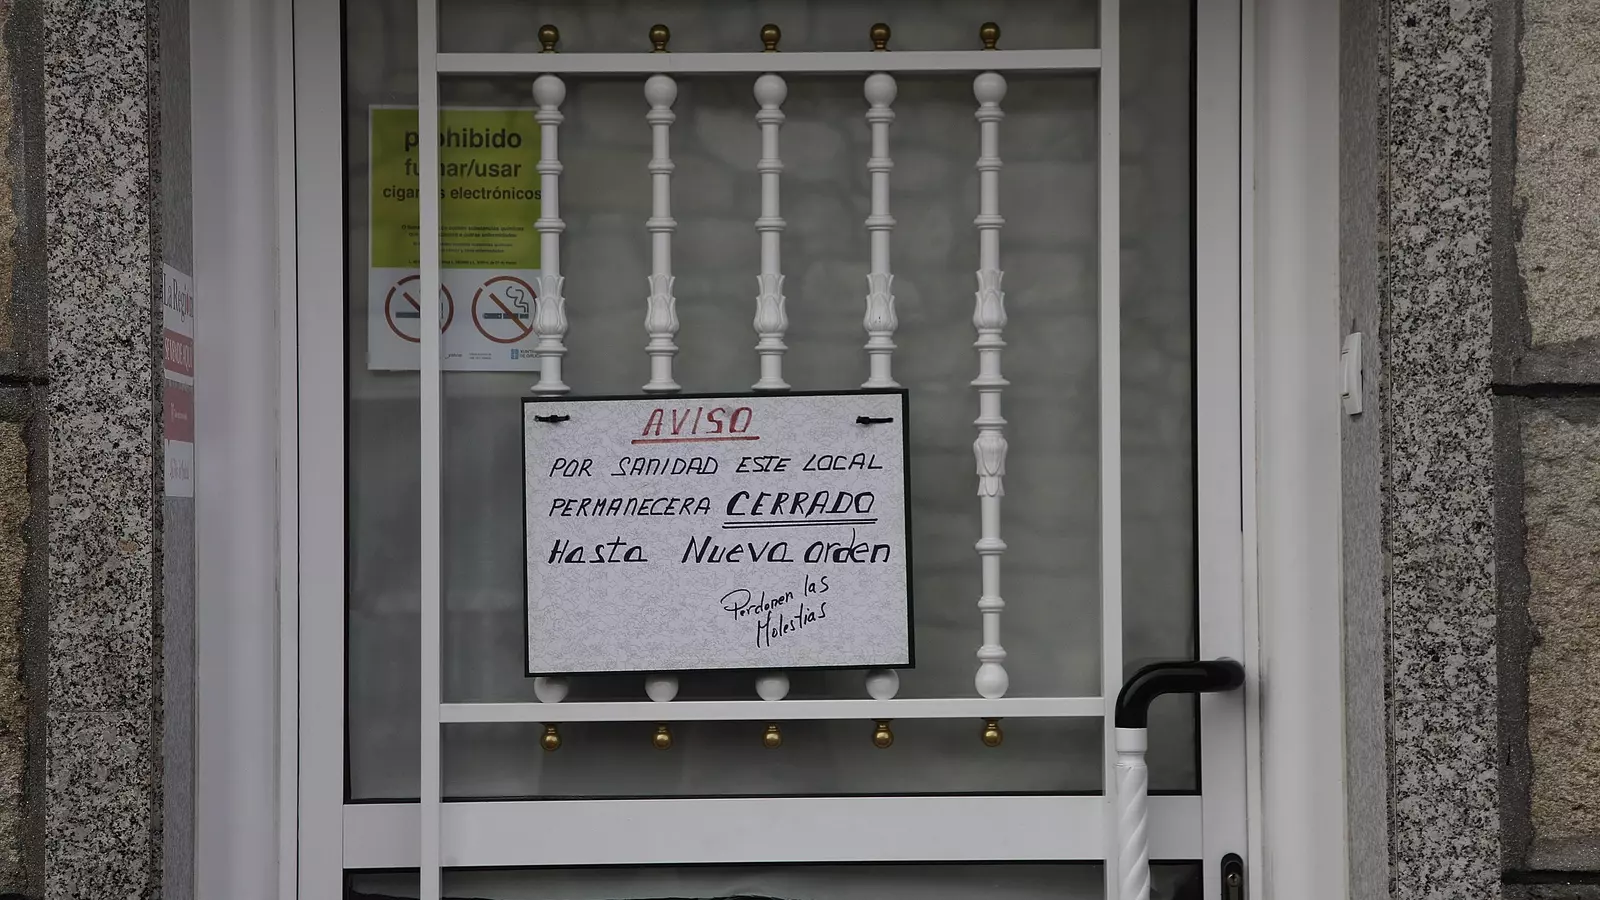 prohibido
fumar/usar
electrónicos
La Región
SE VENDE AQUÍ
AVISO
POR SANIDAD ESTE LOCAL
PERMANECERA CERRADO
Hasta Nueva orden
Perdonen las
Molestias